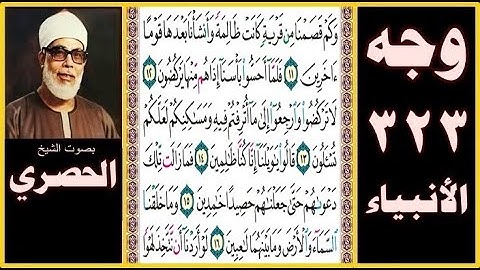 وجه
٣٢٣
الأنبياء
وَكَمْ قَصَمْنَا مِن قَرْيَةٍ كَانَتْ ظَالِمَةً وَأَنشَأْنَا بَعْدَهَا قَوْمًا
ءَاخَرِينَ ١١ فَلَمَّآ أَحَسُّوا۟ بَأْسَنَآ إِذَا هُم مِّنْهَا يَرْكُضُونَ ١٢
لَا تَرْكُضُوا۟ وَٱرْجِعُوٓا۟ إِلَىٰ مَآ أُتْرِفْتُمْ فِيهِ وَمَسَٰكِنِكُمْ لَعَلَّكُمْ
تُسْـَٔلُونَ ١٣ قَالُوا۟ يَٰوَيْلَنَآ إِنَّا كُنَّا ظَٰلِمِينَ ١٤ فَمَا زَالَت تِّلْكَ
دَعْوَىٰهُمْ حَتَّىٰ جَعَلْنَٰهُمْ حَصِيدًا خَٰمِدِينَ ١٥ وَمَا خَلَقْنَا
ٱلسَّمَآءَ وَٱلْأَرْضَ وَمَا بَيْنَهُمَا لَٰعِبِينَ ١٦ لَوْ أَرَدْنَآ أَن نَّتَّخِذَ لَهْوًا
بصوت الشيخ
الحصري